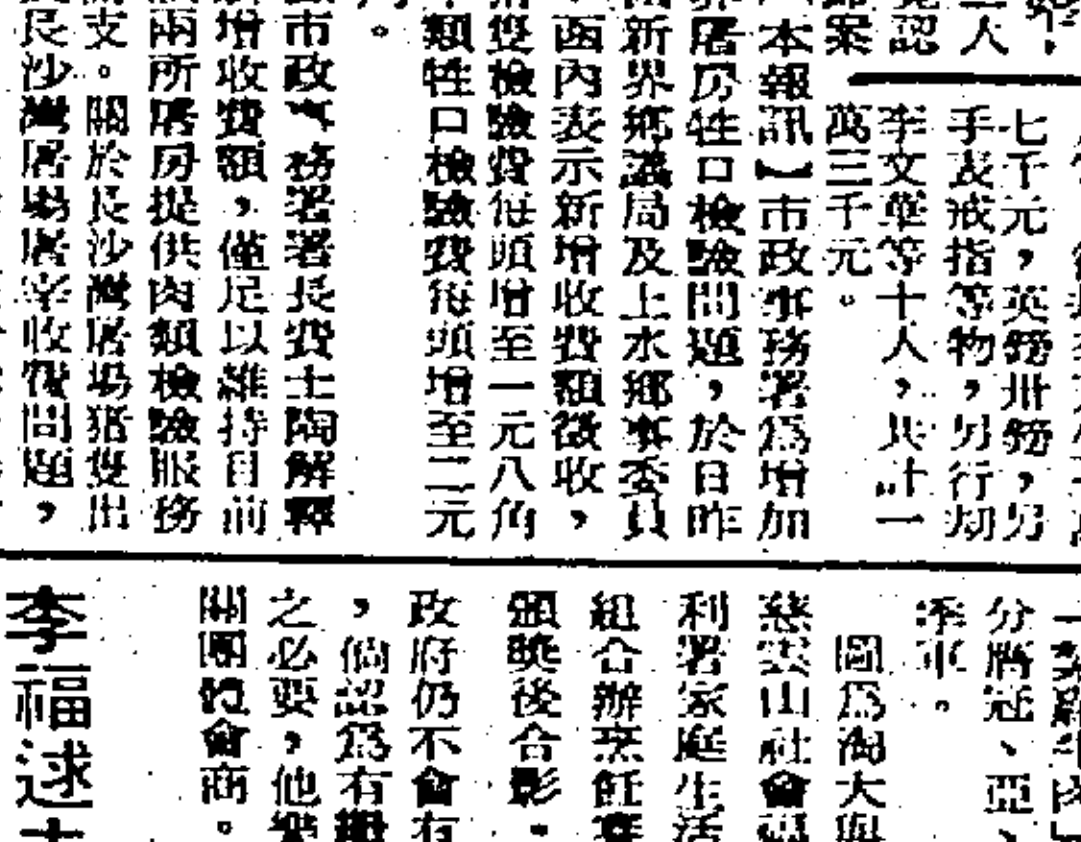 人
覺認
歸案
七千元，英鎊卅鎊，另
手表戒指等物，另行刧
李文華等十人，共計一
萬三千元。
本報訊】市政事務署爲增加
界屠房牲口檢驗問題，於日昨
新界鄉議局及上水鄉事委員
函內表示新增收費額徵收，
隻檢驗費每頭增至一元八角
類牲口檢驗費每頭增至二元
。
市政事務署署長費士陶解釋
增收費額，僅足以維持目前
兩所屠房提供肉類檢驗服務
支。關於長沙灣屠場猪隻出
長沙灣屠場屠宰收費問題，
分膺冠、亞、
季軍。
圖爲淘大與
慈雲山社會福
利署家庭生活
組合辦烹飪賽
頒獎後合影。
政府仍不會有
，倘認爲有
之必要，他樂
關團體會商。
李福逑